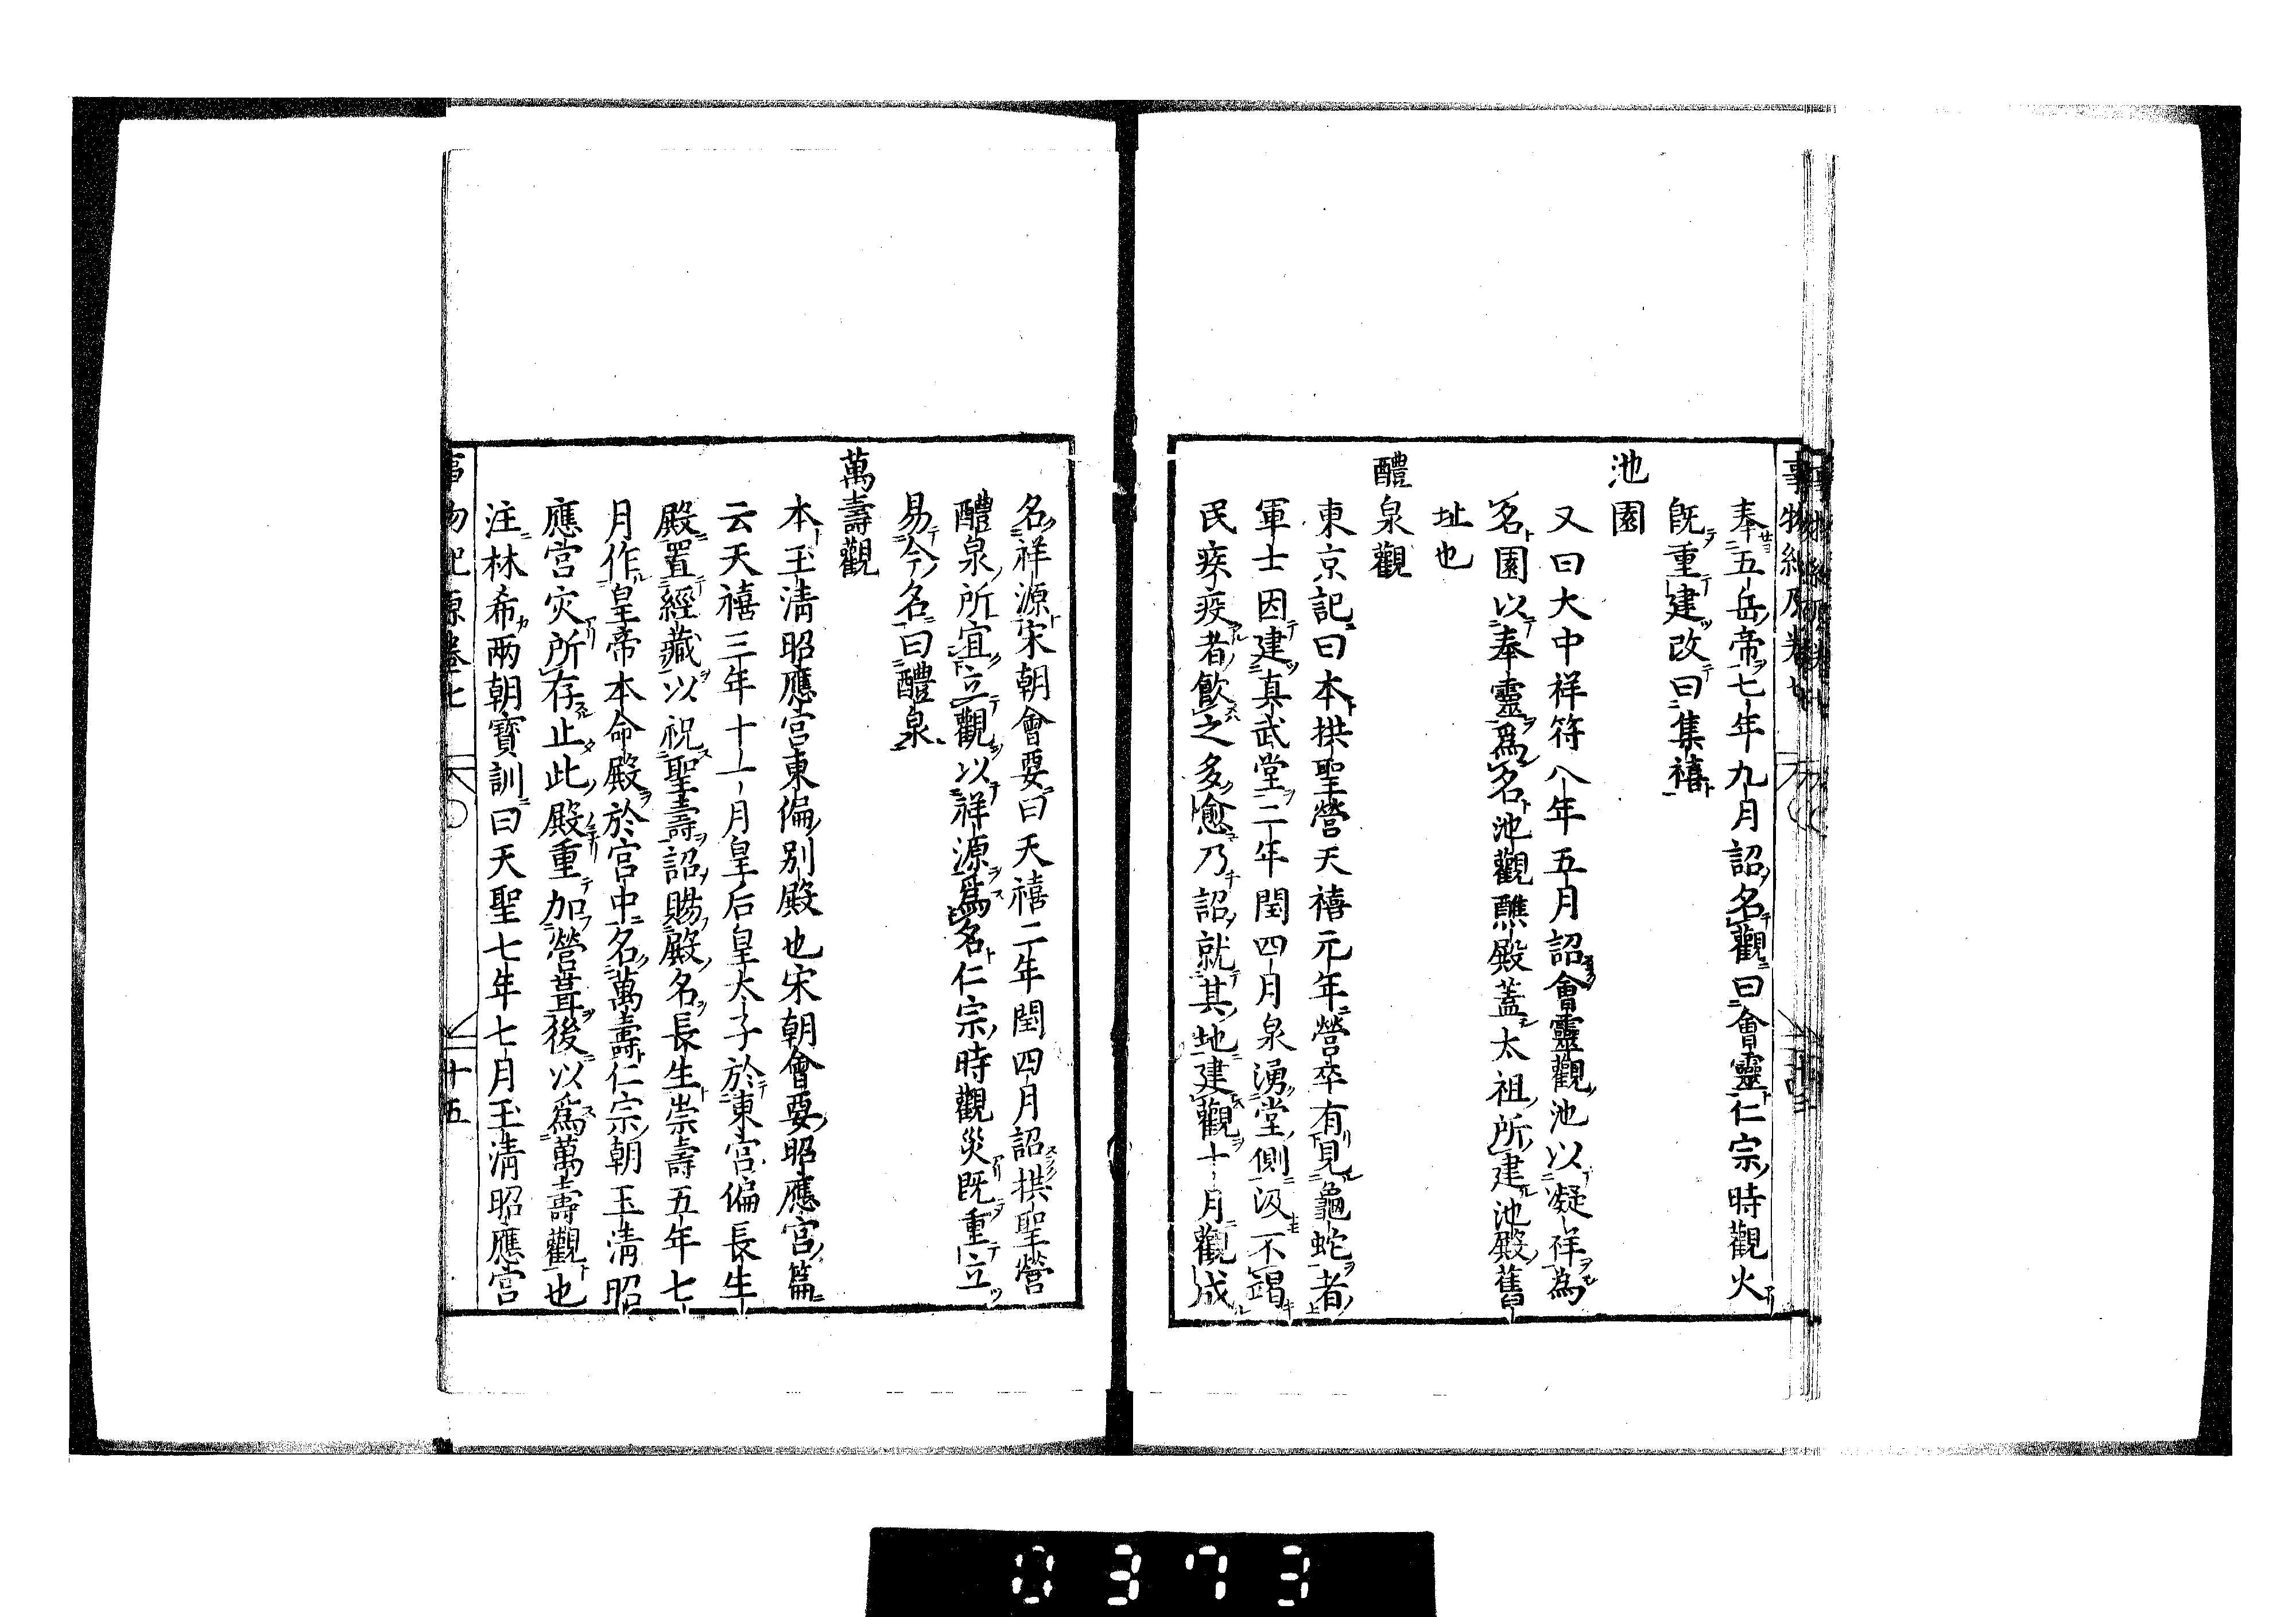 奉五岳帝七年九月詔名觀曰會靈仁宗時觀火
旣重建改曰集禧
池園
又曰大中祥符八年五月詔會靈觀池以凝祥為
名園以奉靈爲名池觀醮殿蓋太祖所建池殿舊
址也
醴泉觀
東京記曰本拱聖營天禧元年營卒有見龜蛇者
軍士因建真武堂二年閏四月泉湧堂側汲不竭
民疾疫者飮之多愈乃詔就其地建觀十月觀成
名祥源宋朝會要曰天禧二年閏四月詔拱聖營
醴泉所宜立觀以祥源爲名仁宗時觀災旣重立
易今名曰醴泉
萬壽觀
本玉淸昭應宮東偏別殿也宋朝會要昭應宮篇
云天禧三年十一月皇后皇太子於東宮偏長生
殿置經藏以祝聖壽詔賜殿名長生崇壽五年七
月作皇帝本命殿於宮中名萬壽仁宗朝玉淸昭
應宮災所存止此殿重加營葺後以爲萬壽觀也
注林希兩朝寶訓曰天聖七年七月玉淸昭應宮
事物紀原卷七 十五
0373